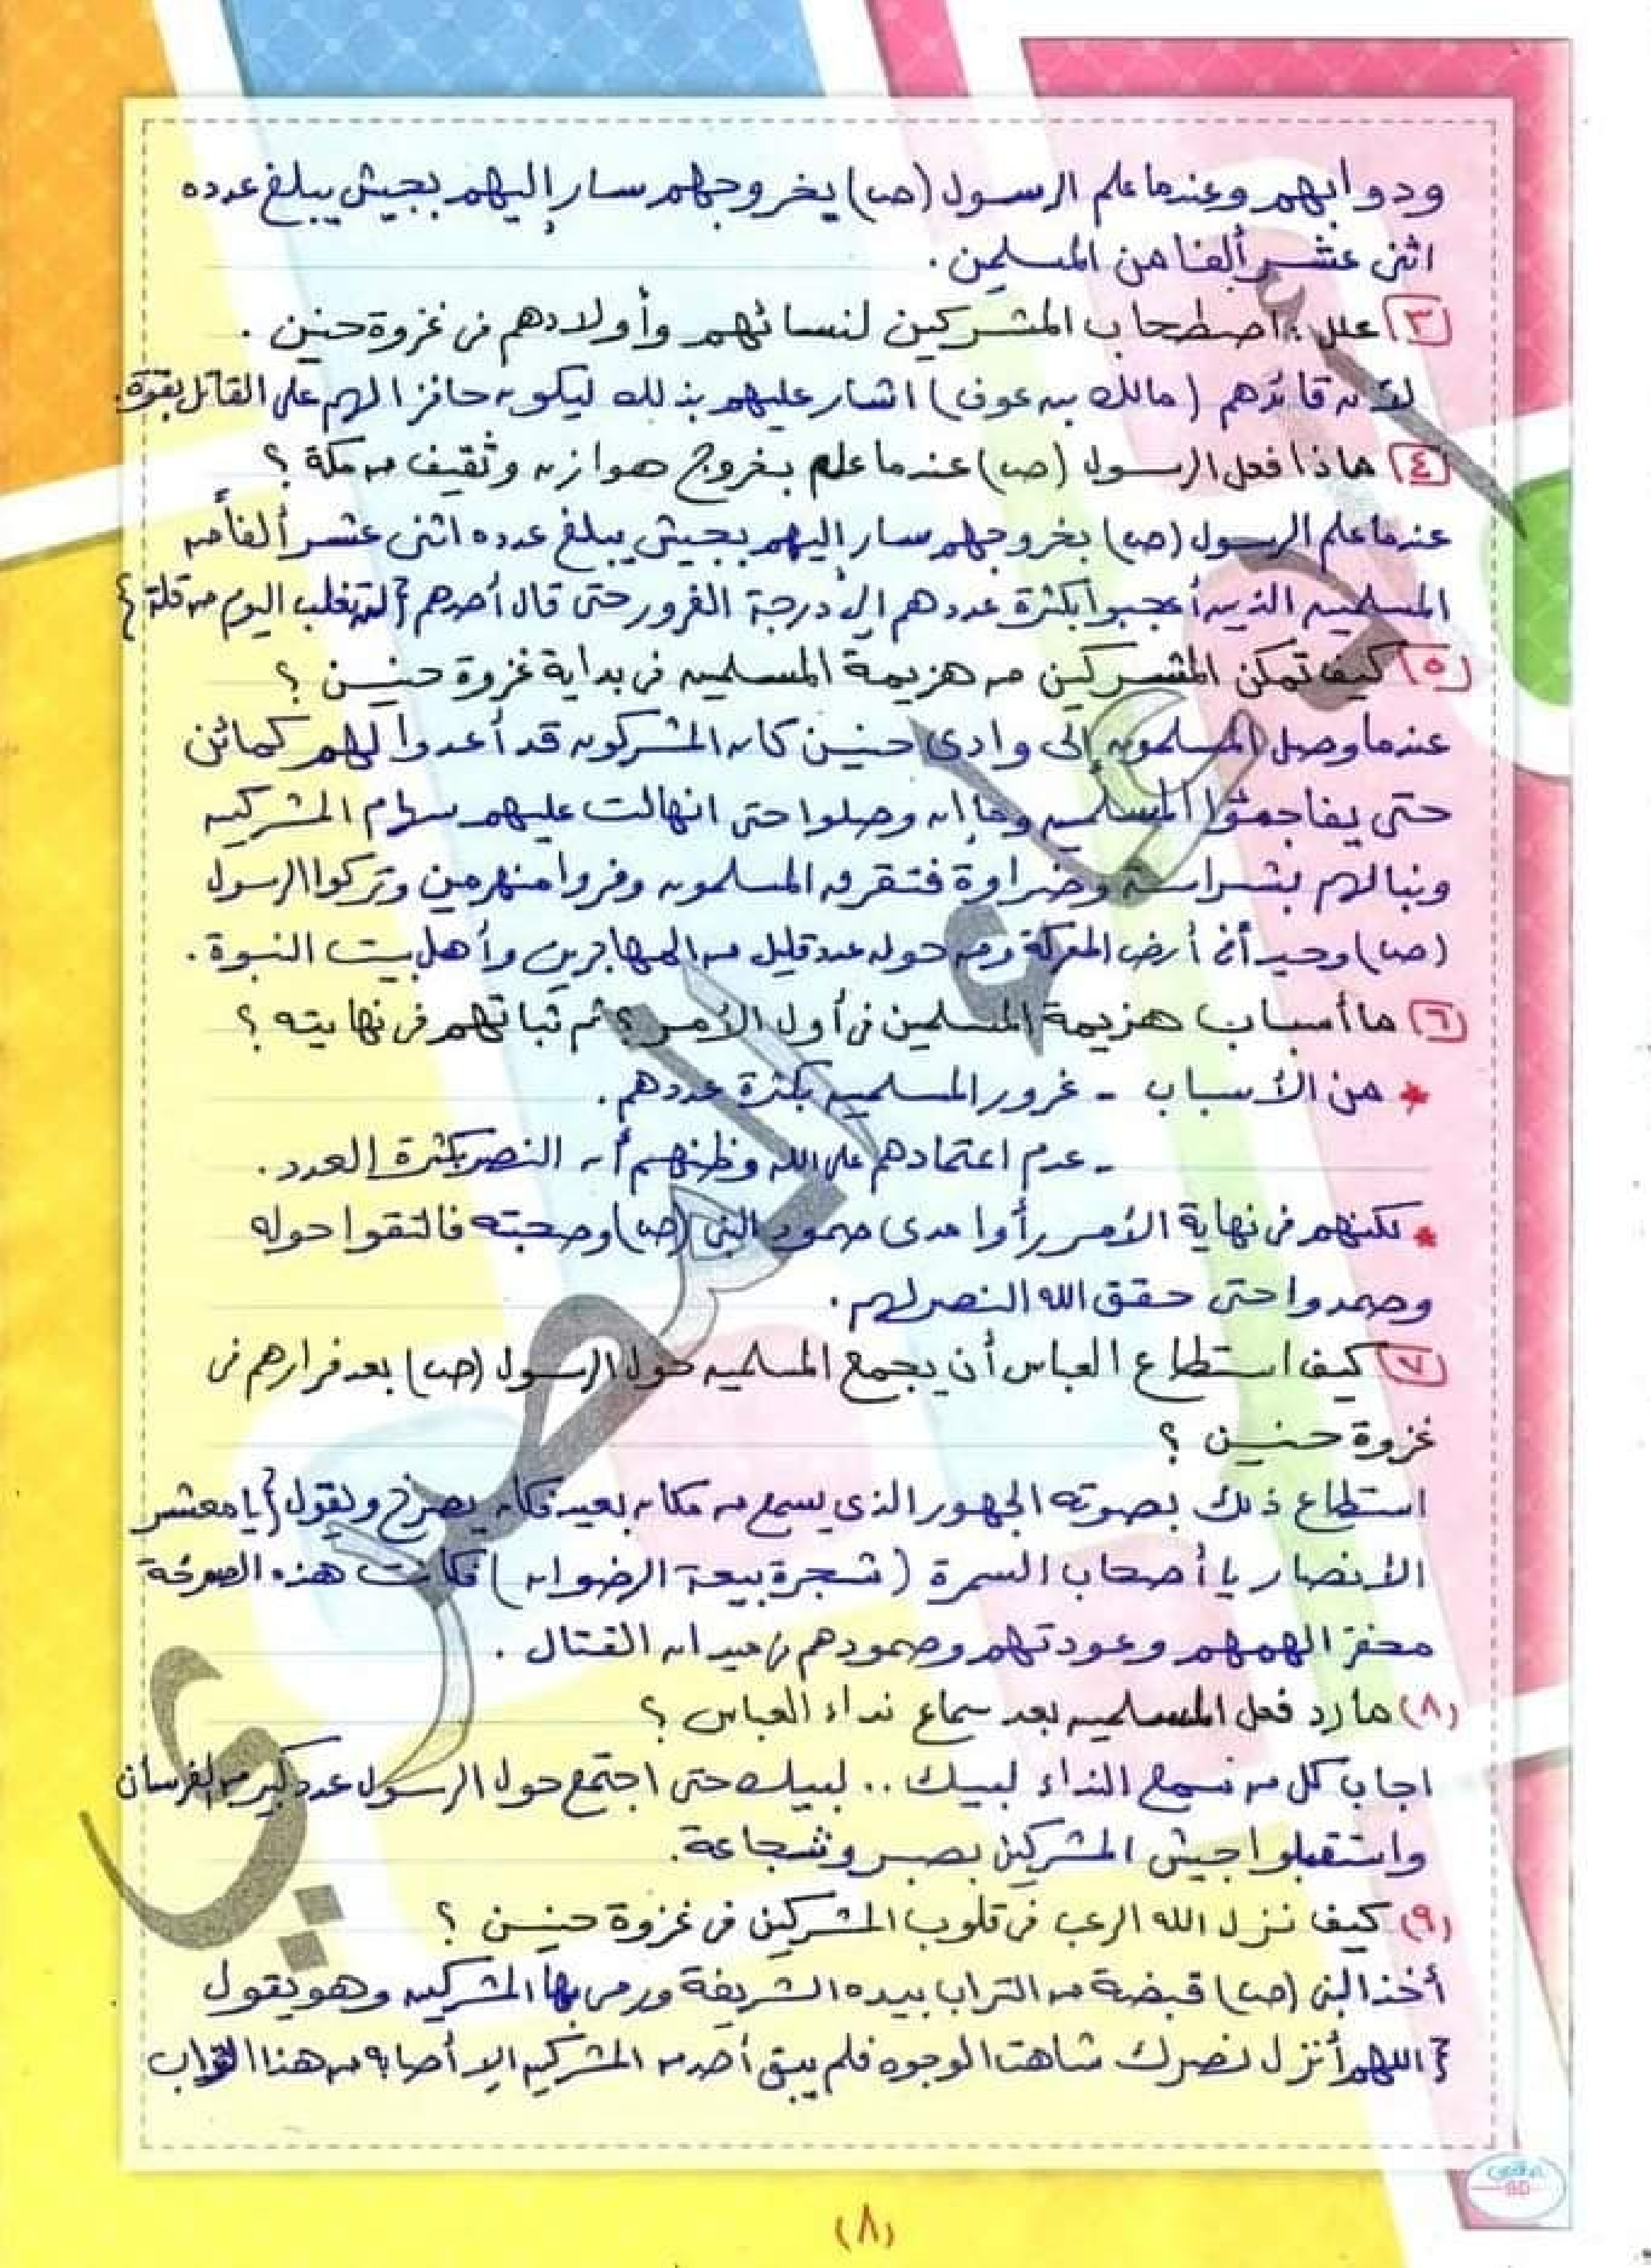 ودوابهم وعندما علم الرسول (ص) بخروجهم سار إليهم بجيش يبلغ عدده
اثنى عشر ألفا من المسلمين .
٣ علل : اصطحاب المشركين لنسائهم وأولادهم فى غزوة حنين .
لأن قائدهم (مالك بن عوف) اشار عليهم بذلك ليكون حافزا لهم على القاتل بقوة.
٤ ماذا فعل الرسول (ص) عندما علم بخروج هوازن وثقيف من مكة ؟
عندما علم الرسول (ص) بخروجهم سار إليهم بجيش يبلغ عدده اثنى عشر ألفاً من
المسلمين الذين أعجبوا بكثرة عددهم إلى درجة الغرور حتى قال أحدهم {لن نغلب اليوم من قلة}
٥ كيف تمكن المشركين من هزيمة المسلمين فى بداية غزوة حنين ؟
عندما وصل المسلمون إلى وادى حنين كان المشركون قد أعدوا لهم كمائن
حتى يفاجئوا المسلمين وما إن وصلوا حتى انهالت عليهم سهام المشركين
ونبالهم بشراسة وضراوة فتفرق المسلمون وفروا منهزمين وتركوا الرسول
(ص) وحيداً فى أرض المعركة ومن حوله عدد قليل من المهاجرين وأهل بيت النبوة .
٦ ما أسباب هزيمة المسلمين فى أول الأمر ؟ ثم ثباتهم فى نهايته ؟
* من الأسباب - غرور المسلمين بكثرة عددهم .
- عدم اعتمادهم على الله وظنهم أن النصر بكثرة العدد .
* لكنهم فى نهاية الأمر رأوا مدى صمود النبى (ص) وصحبته فالتفوا حوله
وصمدوا حتى حقق الله النصر لهم .
٧ كيف استطاع العباس أن يجمع المسلمين حول الرسول (ص) بعد فرارهم فى
غزوة حنين ؟
استطاع ذلك بصوته الجهور الذى يسمع من مكان بعيد فكان يصرخ ويقول {يا معشر
الأنصار يا أصحاب السمرة (شجرة بيعة الرضوان) فكانت هذه الصرخة
محفزا لهمهم وعودتهم وصمودهم فى ميدان القتال .
(٨) ما رد فعل المسلمين بعد سماع نداء العباس ؟
اجاب كل من سمع النداء لبيك .. لبيك حتى اجتمع حول الرسول عدد كبير من الفرسان
واستقبلوا جيش المشركين بصبر وشجاعة.
(٩) كيف نزل الله الرعب فى قلوب المشركين فى غزوة حنين ؟
أخذ النبى (ص) قبضة من التراب بيده الشريفة ورمى بها المشركين وهو يقول
{اللهم أنزل نصرك شاهت الوجوه فلم يبق أحد من المشركين إلا أصابه من هذا التراب
(٨)